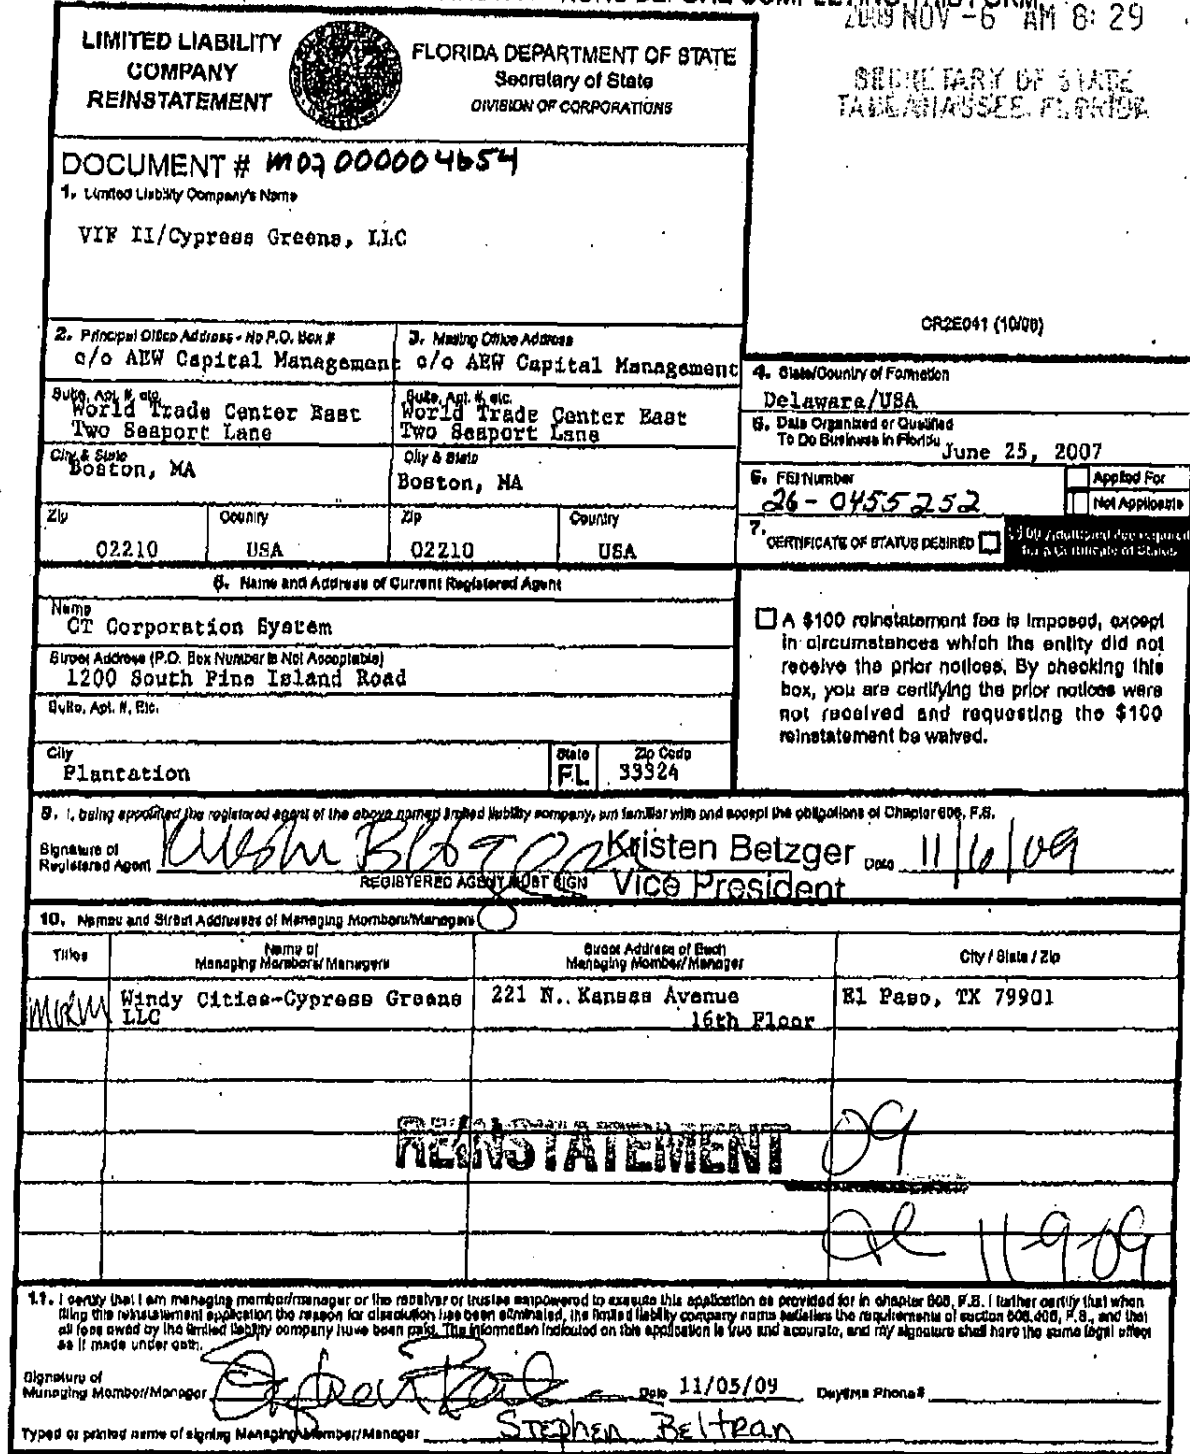 BEFORE COMPLETING THIS FORM
2009 NOV -6 AM 8:29
SECRETARY OF STATE
TALLAHASSEE, FLORIDA
LIMITED LIABILITY
COMPANY
REINSTATEMENT
FLORIDA DEPARTMENT OF STATE
Secretary of State
DIVISION OF CORPORATIONS
DOCUMENT # M07000004654
1. Limited Liability Company's Name
VIF II/Cypress Greens, LLC
CR2E041 (10/08)
2. Principal Office Address - No P.O. Box #
c/o AEW Capital Management
3. Mailing Office Address
c/o AEW Capital Management
Suite, Apt. #, etc.
World Trade Center East
Two Seaport Lane
Suite, Apt. #, etc.
World Trade Center East
Two Seaport Lane
City & State
Boston, MA
City & State
Boston, MA
Zip
02210
Country
USA
Zip
02210
Country
USA
4. State/Country of Formation
Delaware/USA
5. Date Organized or Qualified
To Do Business in Florida
June 25, 2007
6. FEI Number
26-0455252
Applied For
Not Applicable
7. CERTIFICATE OF STATUS DESIRED
$5.00 Additional Fee required
for a Certificate of Status
8. Name and Address of Current Registered Agent
Name
CT Corporation System
Street Address (P.O. Box Number is Not Acceptable)
1200 South Pine Island Road
Suite, Apt. #, Etc.
City
Plantation
State
FL
Zip Code
33324
A $100 reinstatement fee is imposed, except
in circumstances which the entity did not
receive the prior notices. By checking this
box, you are certifying the prior notices were
not received and requesting the $100
reinstatement be waived.
9. I, being appointed the registered agent of the above named limited liability company, am familiar with and accept the obligations of Chapter 608, F.S.
Signature of
Registered Agent
Kristen Betzger
Kristen Betzger
Vice President
Date 11/6/09
REGISTERED AGENT MUST SIGN
10. Names and Street Addresses of Managing Members/Managers
Titles
Name of
Managing Members/Managers
Street Address of Each
Managing Member/Manager
City / State / Zip
MGRM
Windy Cities-Cypress Greens
LLC
221 N. Kansas Avenue
16th Floor
El Paso, TX 79901
REINSTATEMENT
09
11-9-09
11. I certify that I am managing member/manager or the receiver or trustee empowered to execute this application as provided for in chapter 608, F.S. I further certify that when
filing this reinstatement application the reason for dissolution has been eliminated, the limited liability company name satisfies the requirements of section 608.406, F.S., and that
all fees owed by the limited liability company have been paid. The information indicated on this application is true and accurate, and my signature shall have the same legal effect
as if made under oath.
Signature of
Managing Member/Manager
Date 11/05/09
Daytime Phone #
Typed or printed name of signing Managing Member/Manager
Stephen Beltran